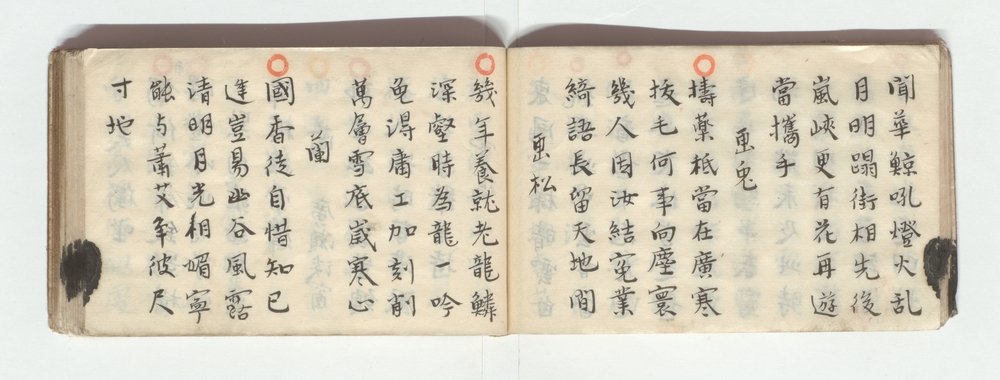 聞華鯨吼燈火乱
月明蹋街相先後
嵐峽更有花再遊
當攜手
画兎
擣藥秪當在廣寒
拔毛何事向塵寰
幾人因汝結冤業
綺語長留天地間
画松
幾年養就老龍鱗
深壑時為龍一吟
免得庸工加刻削
萬層雪底歳寒心
蘭
國香徒自惜知已
逢豈易幽谷風露
清明月光相媚寧
能与蕭艾争彼尺
寸地